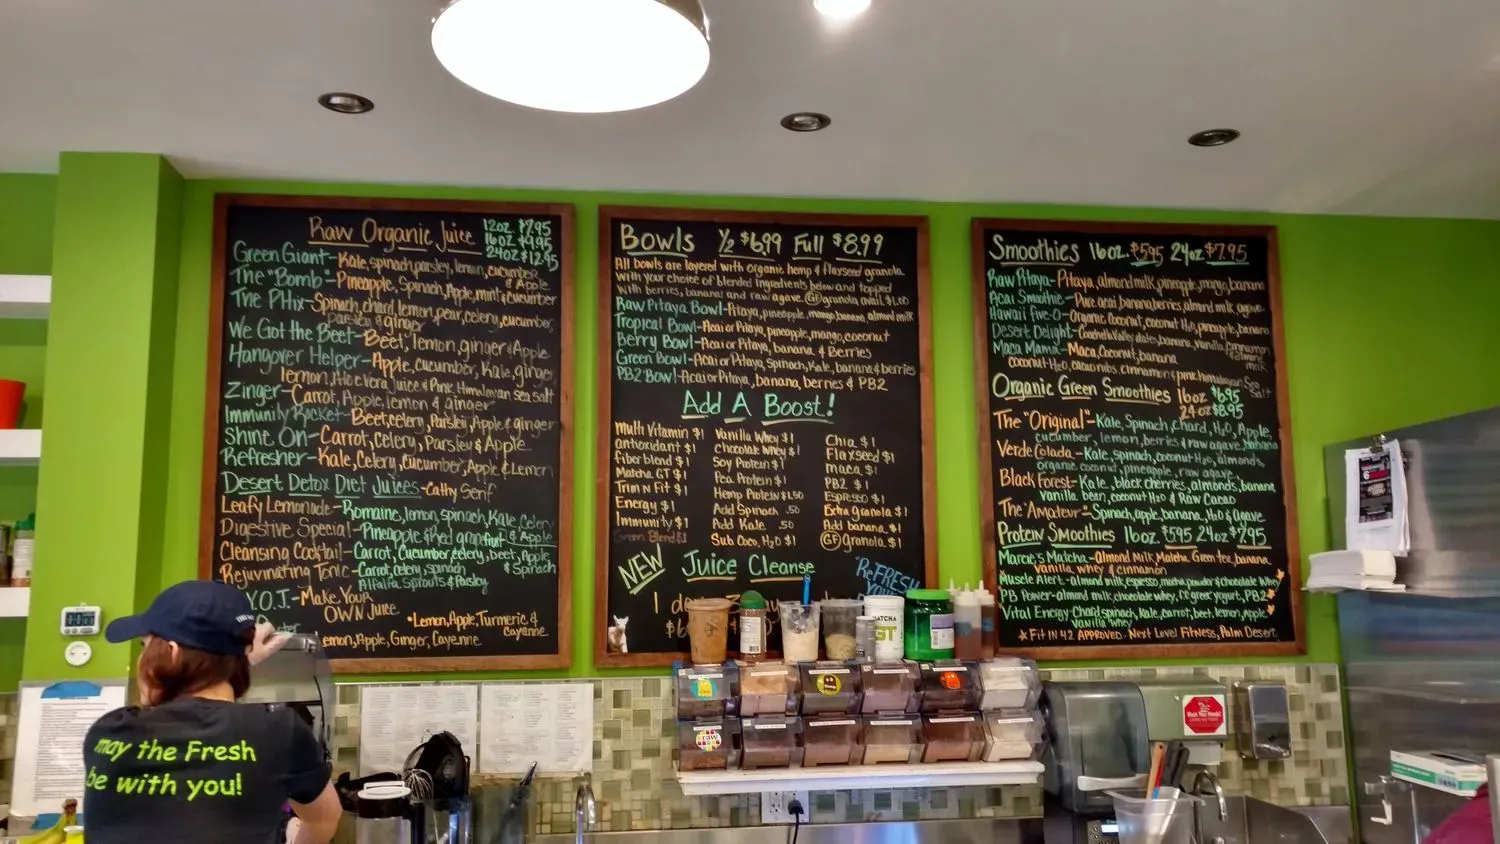 Raw Organic Juice 12oz $7.95
16oz $9.95
24oz $12.95
Green Giant-Kale,spinach,parsley,lemon,cucumber
& Apple
The "Bomb"-Pineapple,Spinach,Apple,mint & cucumber
The PHix-Spinach,chard,lemon,pear,celery,cucumber,
parsley & ginger
We Got the Beet-Beet,lemon,ginger & Apple
Hangover Helper-Apple,cucumber,Kale,ginger
lemon,Aloe Vera Juice & Pink Himalayan sea salt
Zinger-Carrot,Apple,lemon & ginger
Immunity Rocket-Beet,celery,Parsley,Apple & ginger
Shine On-Carrot,Celery,Parsley & Apple
Refresher-Kale,Celery,cucumber,Apple & Lemon
Desert Detox Diet Juices-Cathy Serif
Leafy Lemonade-Romaine,lemon,spinach,Kale,Celery
& Apple
Digestive Special-Pineapple & Red grapefruit
Cleansing Cocktail-Carrot,Cucumber,celery,beet,Apple
& Spinach
Rejuvinating Tonic-Carrot,celery,spinach
Alfalfa Sprouts & Parsley
Y.O.J.-Make Your
OWN Juice
•Lemon,Apple,Turmeric &
Cayenne
Lemon,Apple,Ginger,Cayenne
Bowls ½ $6.99 Full $8.99
All bowls are layered with organic hemp & flaxseed granola
with your choice of blended ingredients below and topped
with berries, bananas and raw agave. GF granola avail. $1.00
Raw Pitaya Bowl-Pitaya,pineapple,mango,banana,almond milk
Tropical Bowl-Acai or Pitaya,pineapple,mango,coconut
Berry Bowl-Acai or Pitaya,banana & Berries
Green Bowl-Acai or Pitaya,Spinach,Kale,banana & berries
PB2 Bowl-Acai or Pitaya,banana,berries & PB2
Add A Boost!
Multi Vitamin $1
antioxidant $1
fiber blend $1
Matcha GT $1
Trim n Fit $1
Energy $1
Immunity $1
Green Blend $1
Vanilla Whey $1
Chocolate Whey $1
Soy Protein $1
Pea Protein $1
Hemp Protein $1.50
Add Spinach .50
Add Kale .50
Sub Coco. H₂O $1
Chia $1
Flaxseed $1
maca $1
PB2 $1
Espresso $1
Extra granola $1
Add banana $1
GF granola $1
NEW
Juice Cleanse
"ReFRESH
1 day
Smoothies 16oz. $5.95 24oz $7.95
Raw Pitaya-Pitaya,almond milk,pineapple,mango,banana
Acai Smoothie-Pure acai,banana,berries,almond milk,agave
Hawaii five-O-Organic Coconut,coconut H₂O,pineapple,banana
Desert Delight-Coachella Valley dates,banana,vanilla,cinnamon
& almond milk
Maca Mama-Maca,Coconut,banana
coconut-H₂O,cacao nibs,cinnamon & pink himalayan Sea Salt
Organic Green Smoothies 16oz $6.95
24oz $8.95
The "Original"-Kale,Spinach,chard,H₂O,Apple,
cucumber,lemon,berries & raw agave,banana
Verde Colada-Kale,spinach,coconut H₂O,almonds,
organic coconut,pineapple,raw agave
Black Forest-Kale,black cherries,almonds,banana,
vanilla bean,coconut H₂O & Raw Cacao
The "Amateur"-Spinach,apple,banana,H₂O & Agave
Protein Smoothies 16oz. $5.95 24oz $7.95
Marcie's Matcha-almond Milk,Matcha Green tea,banana,
Vanilla,whey & cinnamon
Muscle Alert-almond milk,espresso,maca powder & chocolate Whey
PB Power-Almond milk,chocolate whey,N.F. greek yogurt,PB2
Vital Energy-Chard,spinach,kale,carrot,beet,lemon,Apple
Vanilla Whey
☆ Fit IN 42 APPROVED. Next Level Fitness, Palm Desert
MATCHA
GT
may the Fresh
be with you!
raw
Wash Your Hands!